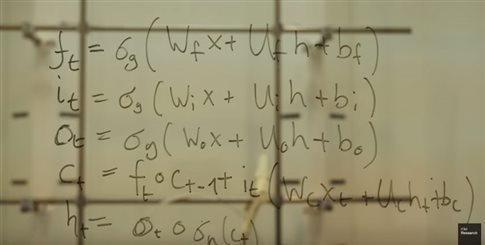 f_t = σ_g(W_f x + U_f h + b_f)
i_t = σ_g(W_i x + U_i h + b_i)
o_t = σ_g(W_o x + U_o h + b_o)
c_t = f_t ∘ c_{t-1} + i_t(W_c x_t + U_c h_t + b_c)
h_t = o_t ∘ σ_h(c_t)
Research